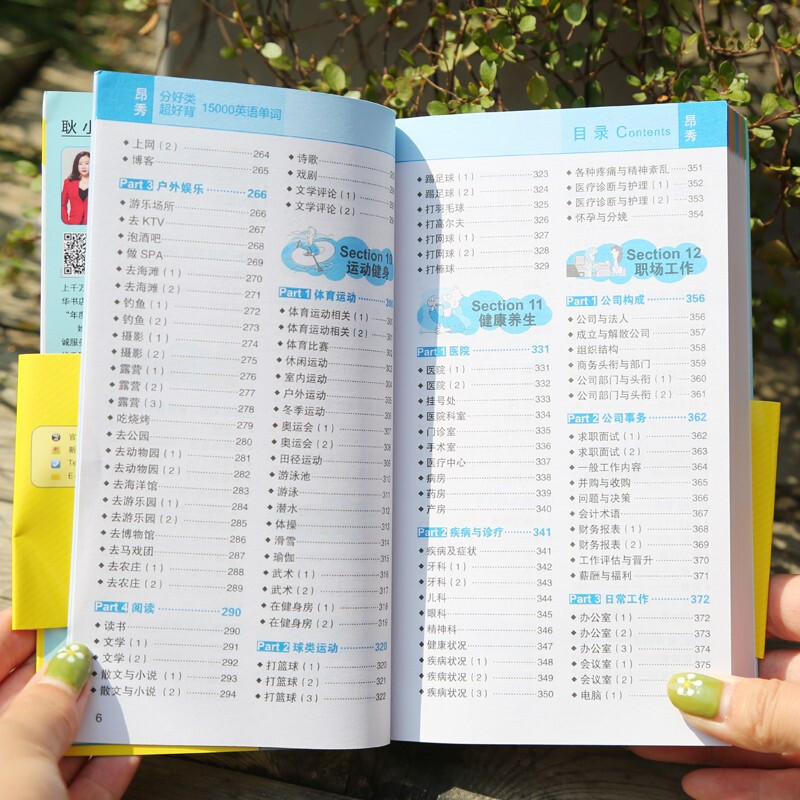 耿小
上千万
华书店
“年度
诚服务
昂秀
分好类
超好背
15000英语单词
上网（2） 264
博客 265
Part 3 户外娱乐 266
游乐场所 266
去 KTV 267
泡酒吧 268
做 SPA 269
去海滩（1） 270
去海滩（2） 271
钓鱼（1） 272
钓鱼（2） 273
摄影（1） 274
摄影（2） 275
露营（1） 276
露营（2） 277
露营（3） 278
吃烧烤 279
去公园 280
去动物园（1） 281
去动物园（2） 282
去海洋馆 283
去游乐园（1） 284
去游乐园（2） 285
去博物馆 286
去马戏团 287
去农庄（1） 288
去农庄（2） 289
Part 4 阅读 290
读书 290
文学（1） 291
文学（2） 292
散文与小说（1） 293
散文与小说（2） 294
6
诗歌
戏剧
文学评论（1）
文学评论（2）
Section 10
运动健身
Part 1 体育运动
体育运动相关（1）
体育运动相关（2）
体育比赛
休闲运动
室内运动
户外运动
冬季运动
奥运会（1）
奥运会（2）
田径运动
游泳池
游泳
潜水
体操
滑雪
瑜伽
武术（1） 316
武术（2） 317
在健身房（1） 318
在健身房（2） 319
Part 2 球类运动 320
打篮球（1） 320
打篮球（2） 321
打篮球（3） 322
目录 Contents
昂秀
踢足球（1） 323
踢足球（2） 324
打羽毛球 325
打高尔夫 326
打网球（1） 327
打网球（2） 328
打棒球 329
Section 11
健康养生
Part 1 医院 331
医院（1） 331
医院（2） 332
挂号处 333
医院科室 334
门诊室 335
手术室 336
医疗中心 337
病房 338
药房 339
产房 340
Part 2 疾病与诊疗 341
疾病及症状 341
牙科（1） 342
牙科（2） 343
儿科 344
眼科 345
精神科 346
健康状况 347
疾病状况（1） 348
疾病状况（2） 349
疾病状况（3） 350
各种疼痛与精神紊乱 351
医疗诊断与护理（1） 352
医疗诊断与护理（2） 353
怀孕与分娩 354
Section 12
职场工作
Part 1 公司构成 356
公司与法人 356
成立与解散公司 357
组织结构 358
商务头衔与部门 359
公司部门与头衔（1） 360
公司部门与头衔（2） 361
Part 2 公司事务 362
求职面试（1） 362
求职面试（2） 363
一般工作内容 364
并购与收购 365
问题与决策 366
会计术语 367
财务报表（1） 368
财务报表（2） 369
工作评估与晋升 370
薪酬与福利 371
Part 3 日常工作 372
办公室（1） 372
办公室（2） 373
办公室（3） 374
会议室（1） 375
会议室（2）
电脑（1）